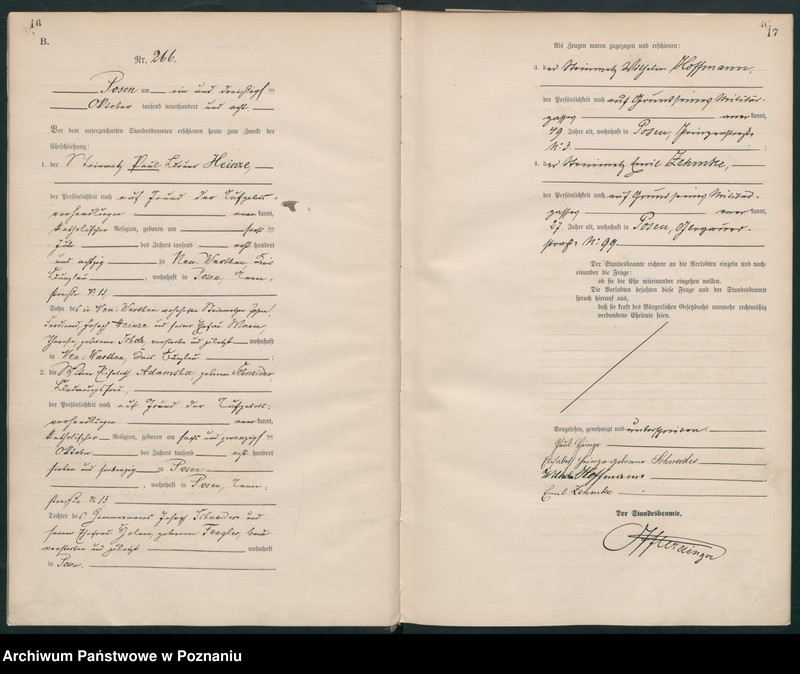 16
B.
Nr. 266.
Posen am ein und dreißigsten
Oktober tausend neunhundert und acht
Vor dem unterzeichneten Standesbeamten erschienen heute zum Zwecke der
Eheschließung:
1. der Steinmetz Paul Heinze,
der Persönlichkeit nach auf Grund der Aufgebots-
verhandlungen kannt,
katholischer Religion, geboren am
Juli des Jahres tausend acht hundert
und achtzig zu Neu-Warthau Kreis
Bunzlau, wohnhaft in Posen,
straße N 13
Sohn des in Neu-Warthau
Joseph Heinze und seiner Ehefrau Maria
geborene verstorben und zuletzt wohnhaft
in Neu-Warthau, Kreis Bunzlau;
2. die Witwe Elisabeth Adamska, geborene Schneider,
der Persönlichkeit nach auf Grund der Aufgebots-
verhandlungen kannt,
katholischer Religion, geboren am sechs und zwanzigsten
Oktober des Jahres tausend acht hundert
sieben und siebenzig zu Posen
, wohnhaft in Posen,
straße N 13
Tochter des Joseph Schneider und
seiner Ehefrau geborene Fengler, beide
verstorben und zuletzt wohnhaft
in Posen.
17
Als Zeugen waren zugezogen und erschienen:
3. der Steinmetz Wilhelm Hoffmann,
der Persönlichkeit nach auf Grund seines Militär-
passes kannt,
49 Jahre alt, wohnhaft in Posen, Prinzenstraße
N. 3. ;
4. der Steinmetz Emil Zehmke,
der Persönlichkeit nach auf Grund seines Militär-
passes kannt,
27 Jahre alt, wohnhaft in Posen, Glogauer-
straße N. 99.
Der Standesbeamte richtete an die Verlobten einzeln und nach-
einander die Frage:
ob sie die Ehe miteinander eingehen wollen.
Die Verlobten bejahten diese Frage und der Standesbeamte
sprach hierauf aus,
daß sie kraft des Bürgerlichen Gesetzbuchs nunmehr rechtmäßig
verbundene Eheleute seien.
Vorgelesen, genehmigt und unterschrieben.
Paul Heinze
Elisabeth Heinze geborene Schneider
Wilhelm Hoffmann
Emil Zehmke
Der Standesbeamte.
Archiwum Państwowe w Poznaniu